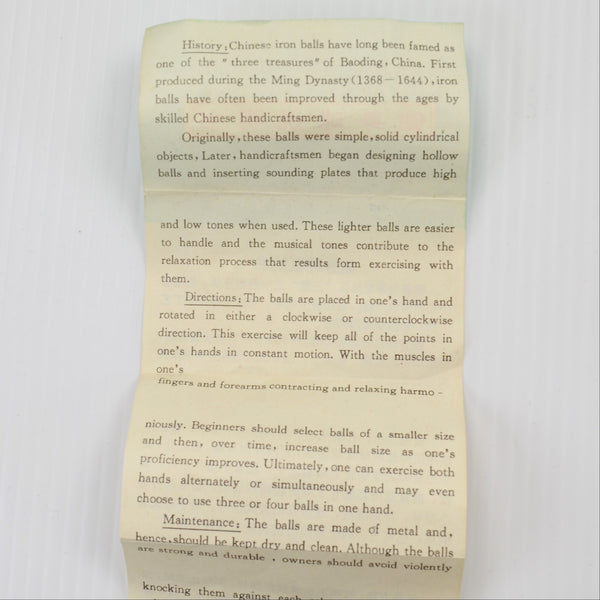 History:Chinese iron balls have long been famed as
one of the "three treasures" of Baoding, China. First
produced during the Ming Dynasty(1368—1644), iron
balls have often been improved through the ages by
skilled Chinese handicraftsmen.
Originally, these balls were simple, solid cylindrical
objects, Later, handicraftsmen began designing hollow
balls and inserting sounding plates that produce high
and low tones when used. These lighter balls are easier
to handle and the musical tones contribute to the
relaxation process that results form exercising with
them.
Directions: The balls are placed in one's hand and
rotated in either a clockwise or counterclockwise
direction. This exercise will keep all of the points in
one's hands in constant motion. With the muscles in
one's
fingers and forearms contracting and relaxing harmo-
niously. Beginners should select balls of a smaller size
and then, over time, increase ball size as one's
proficiency improves. Ultimately, one can exercise both
hands alternately or simultaneously and may even
choose to use three or four balls in one hand.
Maintenance: The balls are made of metal and,
hence, should be kept dry and clean. Although the balls
are strong and durable, owners should avoid violently
knocking them against each